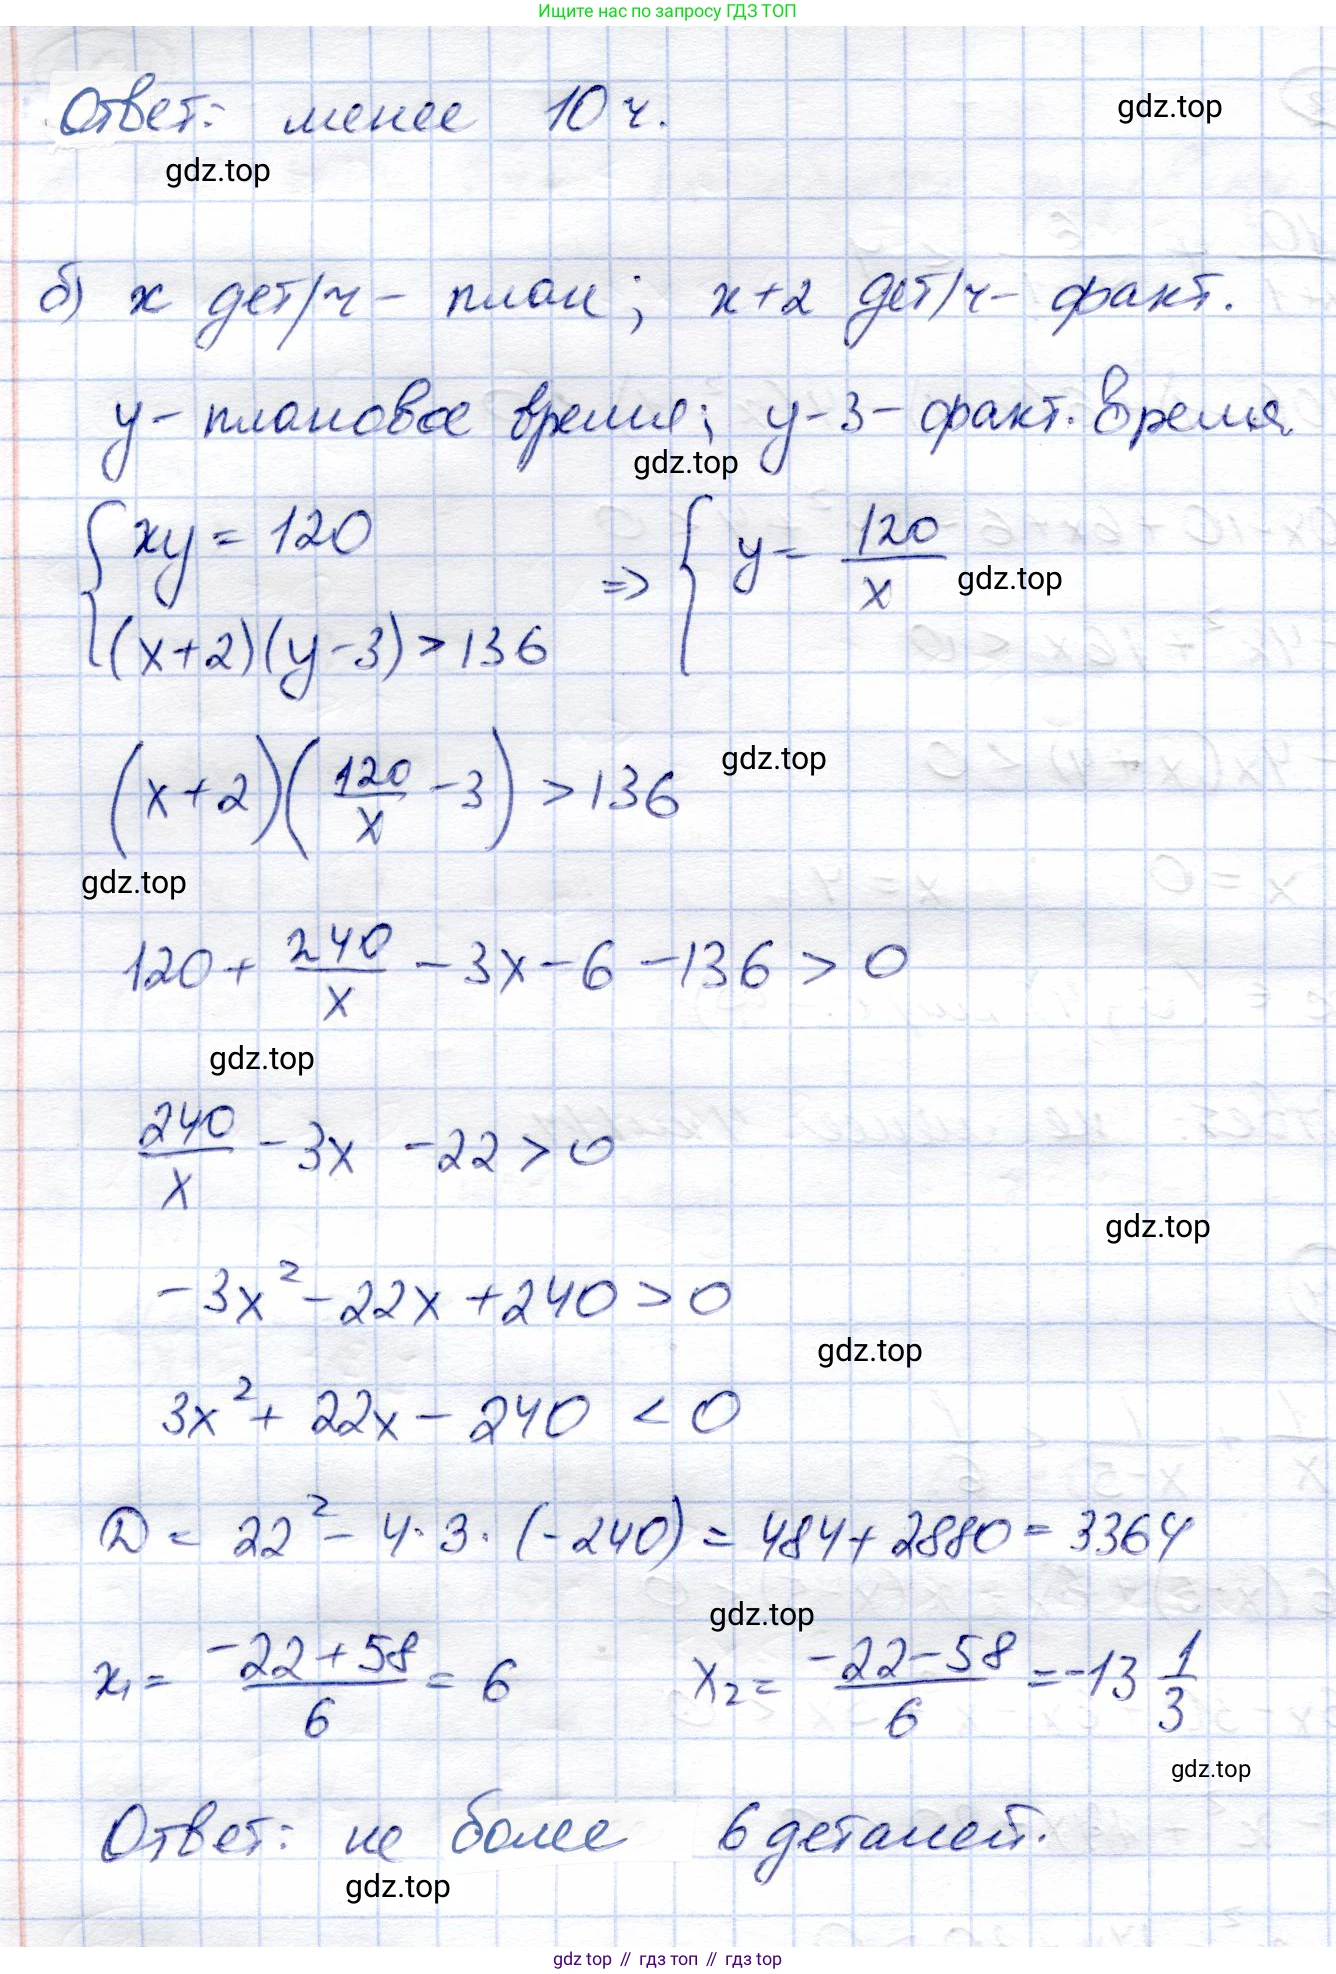 Ищите нас по запросу ГДЗ ТОП
Ответ: менее 10 ч.
gdz.top
gdz.top
б) x дет/ч - план; x+2 дет/ч - факт.
y - плановое время; y-3 - факт. время
gdz.top
{ xy = 120 => { y = 120/x
gdz.top
(x+2)(y-3) > 136
(x+2)(120/x - 3) > 136
gdz.top
gdz.top
120 + 240/x - 3x - 6 - 136 > 0
gdz.top
240/x - 3x - 22 > 0
gdz.top
-3x² - 22x + 240 > 0
gdz.top
3x² + 22x - 240 < 0
D = 22² - 4·3·(-240) = 484 + 2880 = 3364
gdz.top
x₁ = (-22+58)/6 = 6 x₂ = (-22-58)/6 = -13 1/3
gdz.top
Ответ: не более 6 деталей.
gdz.top
gdz top // гдз топ // гдз top